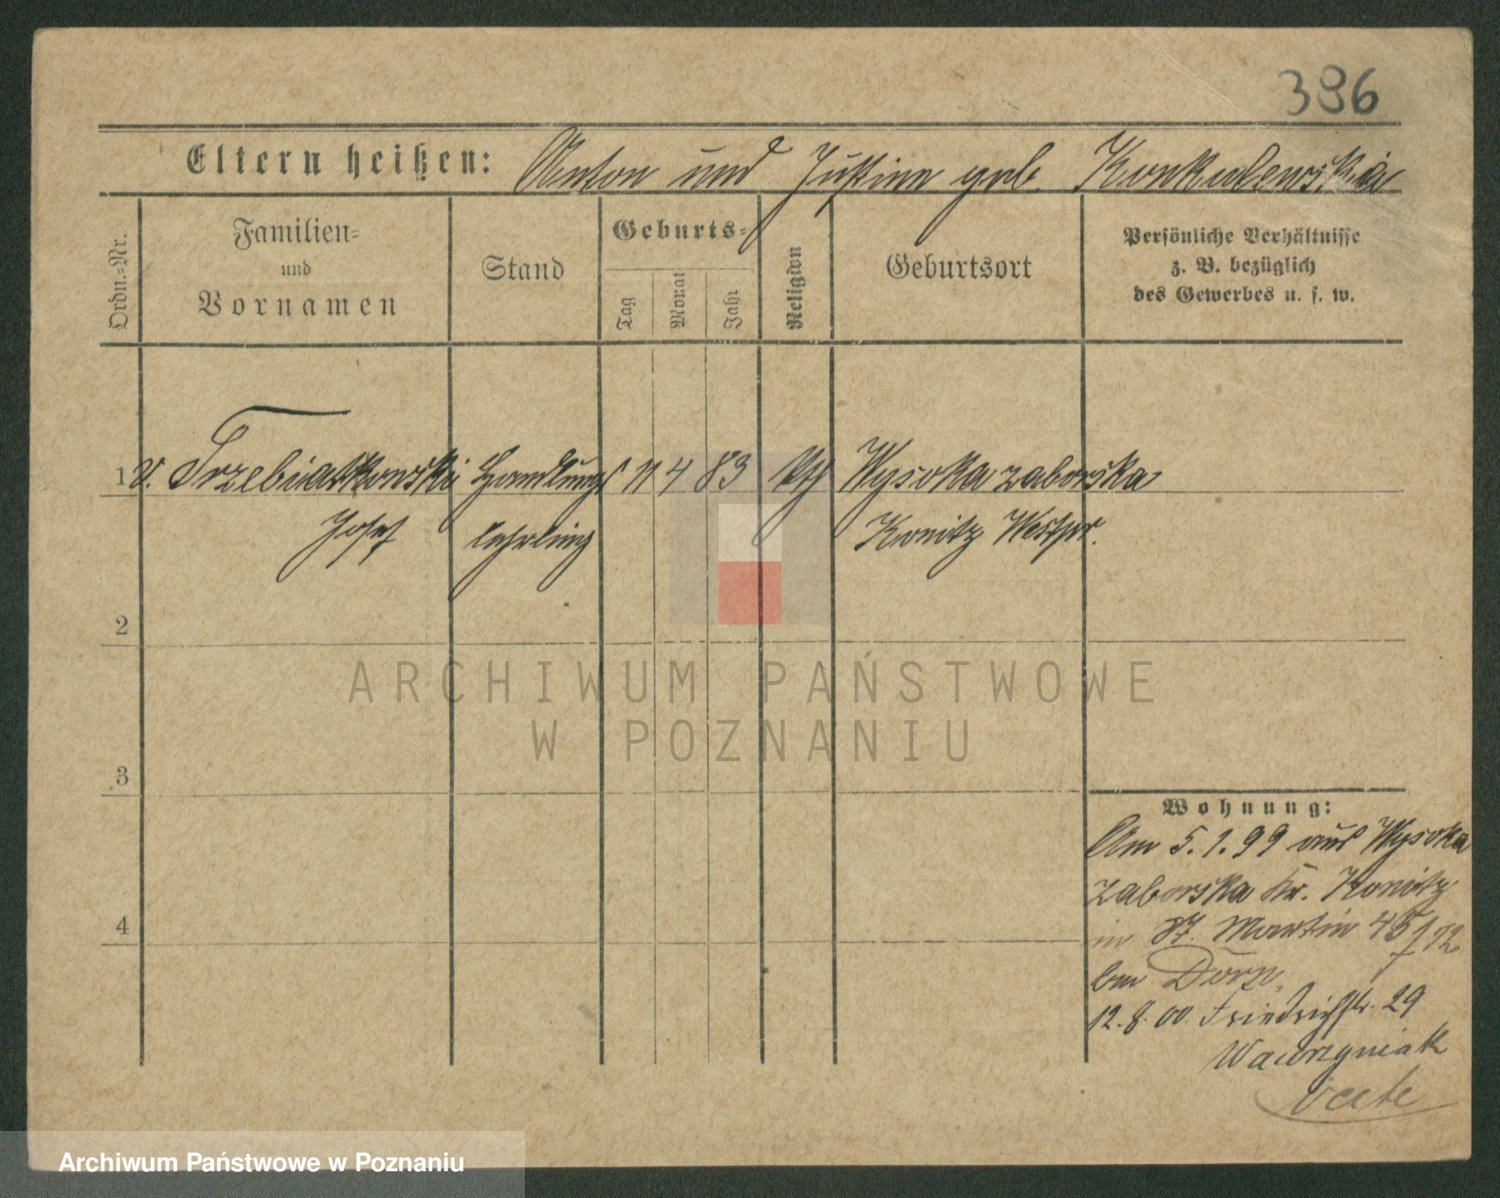 396
Eltern heißen: Anton und Justine geb. Konkulewska
Ordn.=Nr.
Familien=
und
Vornamen
Stand
Geburts=
Tag
Monat
Jahr
Religion
Geburtsort
Persönliche Verhältnisse
z. B. bezüglich
des Gewerbes u. s. w.
1 v. Trzebiatkowski Handlungs 11 4 83 kth Wysoka zaborska
Josef lehrling Konitz Westpr.
2
ARCHIWUM PAŃSTWOWE
W POZNANIU
3
Wohnung:
Am 5.1.99 aus Wysoka
zaborska Kr. Konitz
4
in St. Martin 45/
bei Dorn.
12.8.00. Friedrichstr. 29
Wawrzyniak
verte
Archiwum Państwowe w Poznaniu